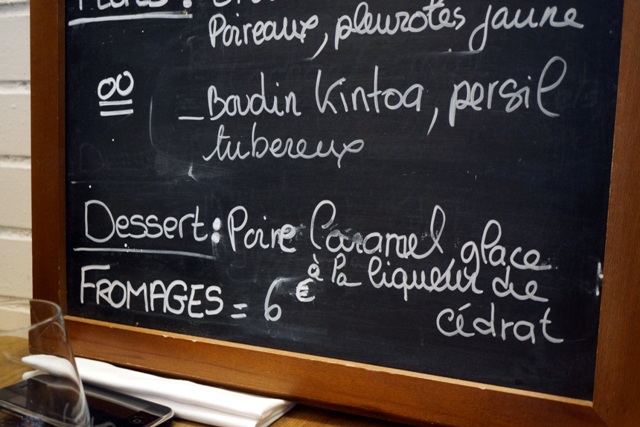 Poireaux, pleurotes jaune
ou
_ Boudin Kintoa, persil
tubereux
Dessert: Poire Caramel glace
à la liqueur de
cédrat
FROMAGES = 6 €